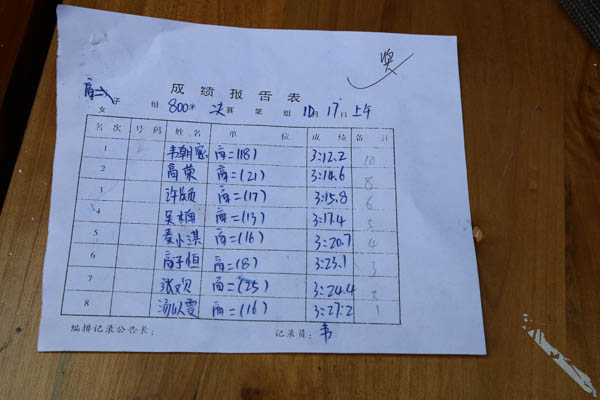 奖
成绩报告表
高二女子 组 800米 决赛 第 组 10月17日上午
名次 号码 姓名 单位 成绩 备注
1 韦朝 高二(18) 3:12.2 10
2 高荣 高二(21) 3:14.6 8
3 许颀 高二(17) 3:15.8 6
4 吴 高二(13) 3:17.4 5
5 小淇 高二(16) 3:20.7 4
6 高子恒 高二(8) 3:23.1 3
7 张又贝 高二(25) 3:24.4 2
8 汤以雯 高二(16) 3:27.2 1
编排记录公告长: 记录员:韦